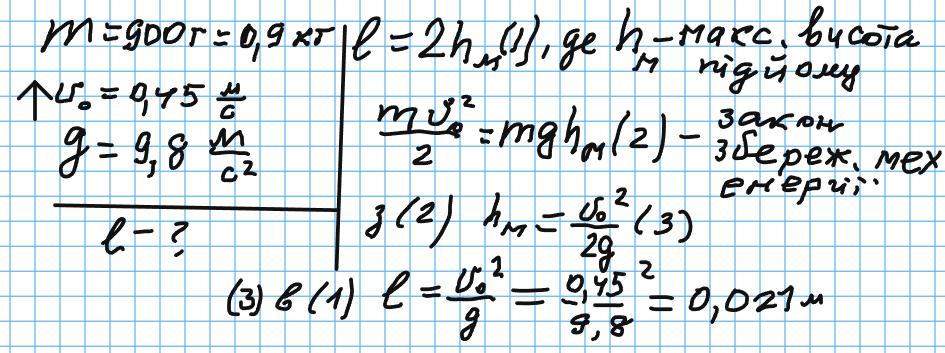 m = 900 г = 0,9 кг
↑ υ₀ = 0,45 м/с
g = 9,8 м/с²
l - ?
l = 2hм (1), де hм - макс. висота підйому
mυ₀²/2 = mghм (2) - закон збереж. мех енергії
з (2) hм = υ₀²/2g (3)
(3) в (1) l = υ₀²/g = 0,45²/9,8 = 0,021 м